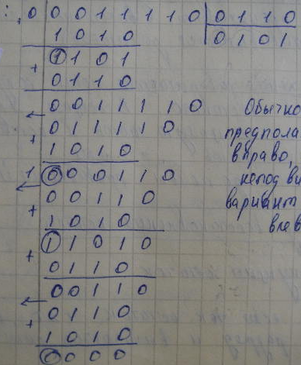 0 0 0 1 1 1 1 1 0 | 0 1 1 0
1 0 1 0 | 0 1 0 1
1 1 0 1
+ 0 1 1 0
← 0 0 1 1 1 1 0
0 1 1 1 1 0 Обычно
+ 1 0 1 0 предпола
1 0 0 0 1 1 0 вправо,
← 0 0 1 1 0
+ 1 0 1 0 вариант
1 1 0 1 0 влев
+ 0 1 1 0
0 0 1 1 0
← 0 1 1 0
+ 1 0 1 0
0 0 0 0